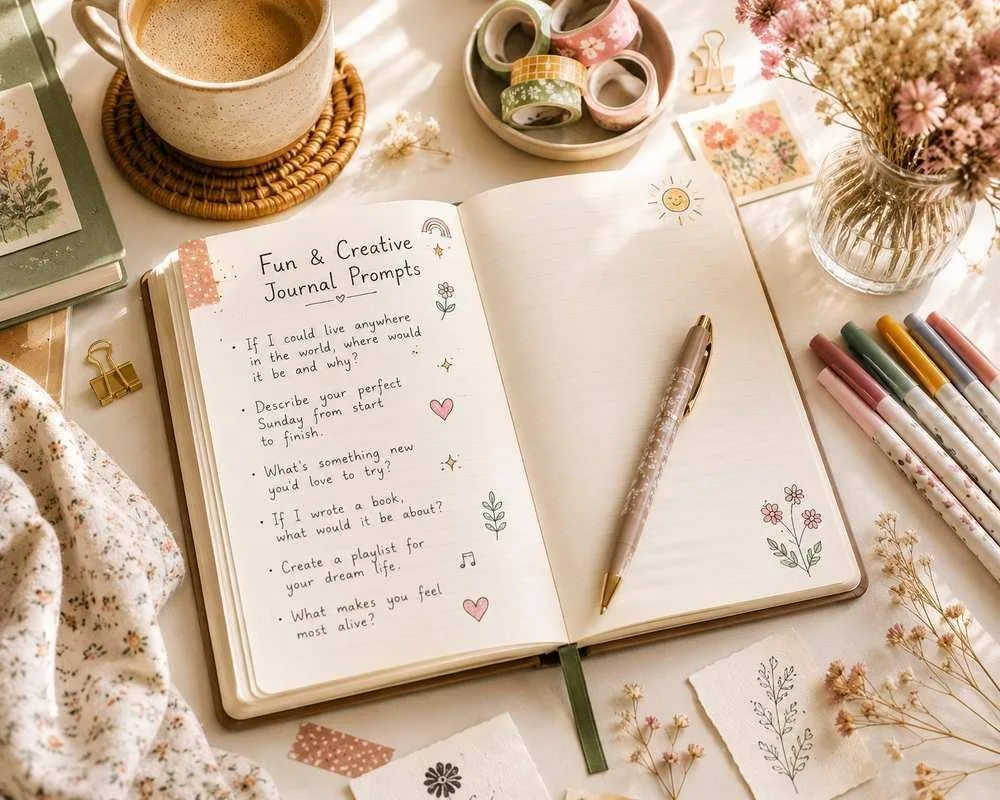 Fun & Creative
Journal Prompts
• If I could live anywhere
in the world, where would
it be and why?
• Describe your perfect
Sunday from start
to finish.
• What's something new
you'd love to try?
• If I wrote a book,
what would it be about?
• Create a playlist for
your dream life.
• What makes you feel
most alive?